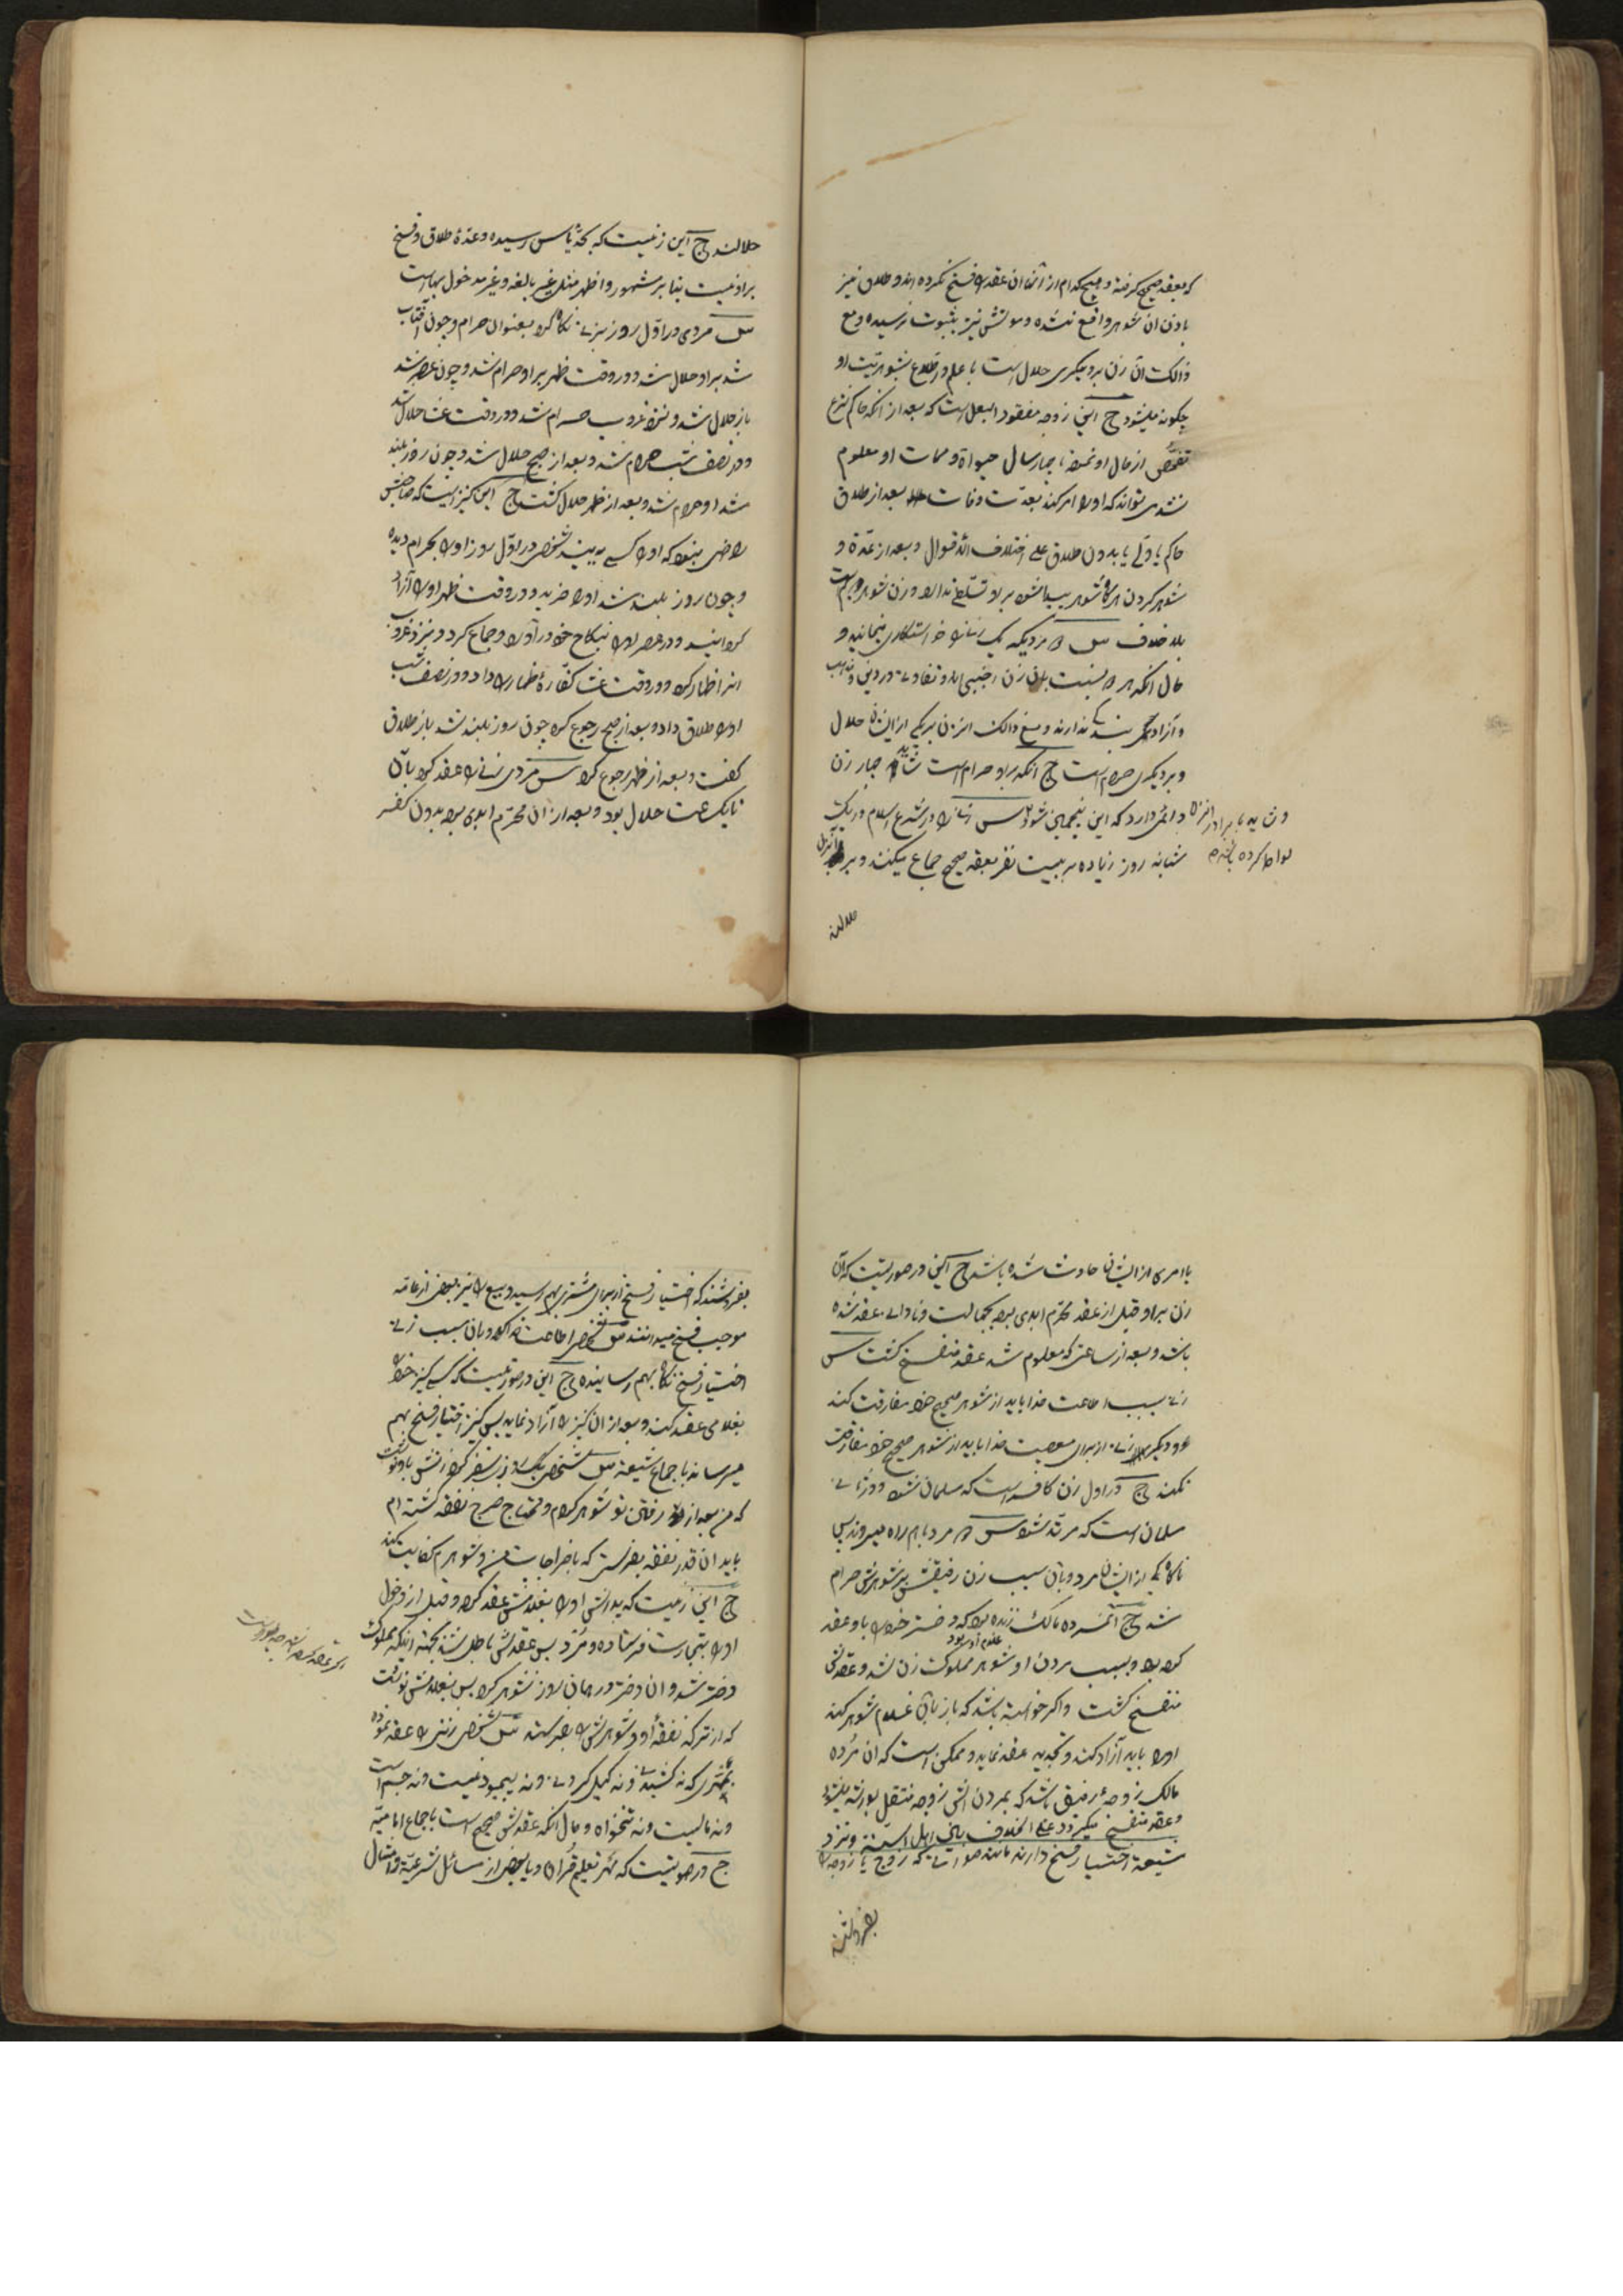 که بعقد صحیح گرفته و هیچکدام از آنها ان عقد را فسخ نکرده اند و طلاق نیز
باذن ان شوهر واقع نشده و موتش نیز بثبوت نرسیده و مع
ذالک آن زن بر دیگری حلال است با علم و اطلاع بشوهریت او
چگونه میشود ج این زوجه مفقود البعل است که بعد از آنکه حاکم شرع
تفحص از حال او نمود تا چهار سال حیوة و ممات او معلوم
نشد می تواند که او را امر کند بعدت وفات بعد از طلاق
حاکم یا ولی یا بدون طلاق علی اختلاف الاقوال و بعد از عدة و
شوهر کردن هرگاه شوهر پیدا شود بر او تسلطی ندارد و زن شوهر دویم است
بلا خلاف س دو مرد یکه یک زنانرا خواستگاری مینمایند و
حال آنکه هر دو نسبت بان زن اجنبی اند و تفاوت در دین و مذهب
و آزادی و بندگی ندارند و مع ذالک انزن بر یکی از ایشان حلال
و بر دیگری حرام است ج آنکه بر او حرام است شاید چهار زن
دائمی دارد که این پنجمین شود س زنانرا در شرع اسلام در یک
شبانه روز زیاده بر بیست نفر بعقد صحیح جماع میکنند و بر انزن
و شاید با برادر انزن
لواط کرده باشد
حلالند
حلالند ج این زنیست که بحد یأس رسیده و عدهٔ طلاق و فسخ
بر او نیست بنا بر مشهور و اظهر مثل غیر بالغه و غیر مدخول بها است
س مردی در اول روز بزنی نگاه کرد بعنوان حرام و چون آفتاب
شد بر او حلال شد و در وقت ظهر بر او حرام شد و چون عصر شد
باز حلال شد و نزد غروب حرام شد و در وقت عشا حلال شد
و در نصف شب حرام شد و بعد از صبح حلال شد و چون روز بلند
شد او حرام شد و بعد از ظهر حلال گشت ج این کنیز ایست که صاحبش
راضی نبود که او را کسی ببیند شخصی در اول روز او را بحرام دیده
و چون روز بلند شد او را خرید و در وقت ظهر او را آزاد
کرد و در عصر او را بنکاح خود در آورد و جماع کرد و نزد غروب
از او ظهار کرد و در وقت عشا کفارهٔ ظهار را داد و در نصف شب
او را طلاق داد و بعد از صبح رجوع کرد چون روز بلند شد باز طلاق
گفت و بعد از ظهر رجوع کرد س مردی زنی را عقد کرد با آن
تا یکساعت حلال بود و بعد از ان محرّم ابدی بود بدون کفر
یا امری از ایشان حادث شده باشد ج این در صورتیست که آن
زن بر او قبل از عقد محرّم ابدی بود بجهالت و نادانی عقد شده
باشد و بعد از ساعتی که معلوم شد عقد منفسخ گشت س
زنی بسبب اطاعت خدا باید از شوهر صحیح خود مفارقت کند
و دیگر زنی از برای معصیت خدا باید از شوهر صحیح خود مفارقت
نکند ج در اول زن کافره است که مسلمان شود و در ثانی
مسلمان است که مرتد شود س دو مرد باهم راه میروند پس
ناگاه یکی از ایشان مرد و بآن سبب زن رفیقش بر شوهرش حرام
شد ج آنمرده مالک زنده بود که دختر خود را باو عقد
غلام او بود
کرده بود و بسبب مردن او شوهر مملوکت زن شد و عقدش
منفسخ گشت و اگر خواسته باشد که باز بآن غلام شوهر کند
او را باید آزاد کند و تجدید عقد نماید و ممکن است که ان مرده
مالک زوجهٔ رفیق باشد که بمردن اش زوجه منتقل بورثه میشود
و عقد منفسخ میگردد علی الخلاف بان اهل السنة و نزد
شیعه اختیار فسخ دارند مانند صورتی که زوج یا زوجه را
بفروشند
بفروشند که اختیار فسخ از برای مشتری بهم رسید و بیع را نیز بعضی از عامه
موجب فسخ میدانند س شخصی اطاعت خدا کرد و بان سبب زنی
اختیار فسخ نکاح بهم رسانیده ج این در صورتیست که کسی کنیز خود را
بغلامی عقد کند و بعد از ان کنیز را آزاد نماید پس کنیز اختیار فسخ بهم
میرساند باجماع شیعه س شخصی یک روز بسفر کرد زنش باو نوشت
که من بعد از رفتن تو شوهر کردم و محتاج خرج نفقه گشته ام
باید ان قدر نفقه بفرستی که باخراجات من و شوهرم کفایت کند
ج این زنیست که پدرش او را بغلامش عقد کرد و قبل از دخول
او را بتجارت فرستاده و مرد پس عقدش باطل شد بجهة اینکه مملوکت
دختر شد و ان دختر در همان روز شوهر کرد پس بغلامش نوشت
که از ترکه نفقهٔ او و شوهرش را بفرستد س شخصی زنی را عقد نموده
بمهری که نه کشیدنی و نه کیل کردنی و نه پیمودنیست و نه جسم است
و نه مالیست و نه تنخواه و حال آنکه عقدش صحیح است باجماع امامیّه
ج در صورتیست که مهر تعلیم قران و یا بعضی از مسائل شرعیّه و امثال